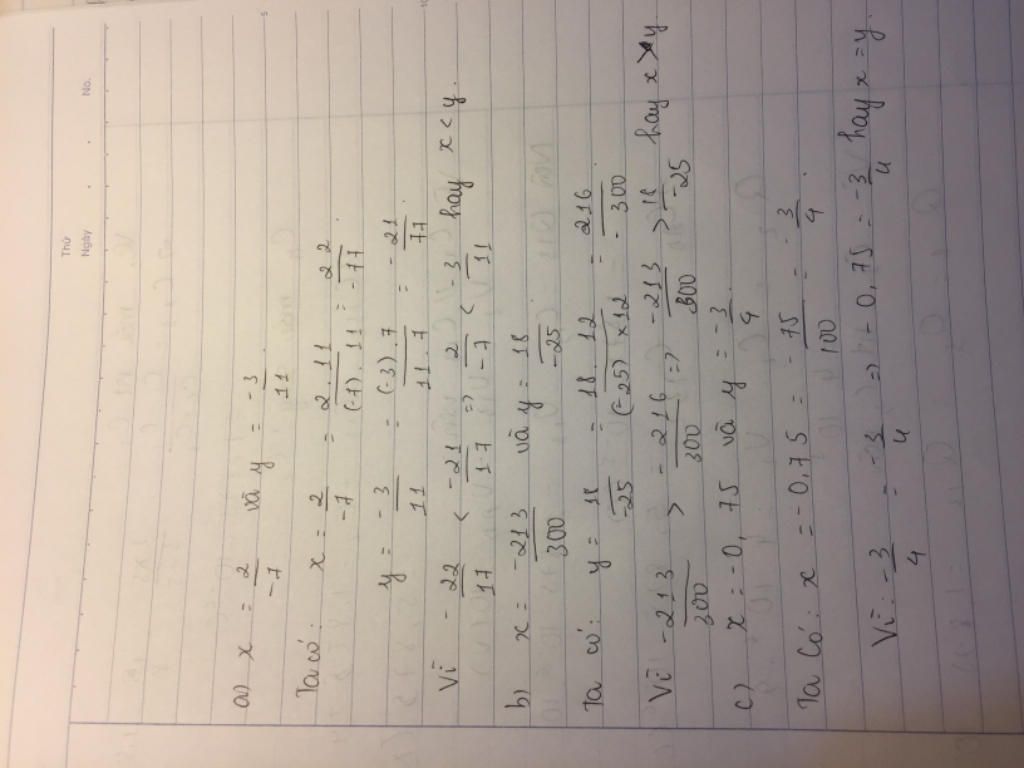 Thứ
Ngày . . No.
a) x = 2/-7 và y = -3/11
Ta có: x = 2/-7 = 2.11/(-7).11 = 22/-77.
y = -3/11 = (-3).7/11.7 = -21/77
Vì -22/77 < -21/77 => 2/-7 < -3/11 hay x < y.
b) x = -213/300 và y = 18/-25
Ta có: y = 18/-25 = 18.12/(-25)×12 = 216/-300
Vì -213/300 > -216/300 => -213/300 > 18/-25 hay x > y
c) x = -0,75 và y = -3/4
Ta có: x = -0,75 = -75/100 = -3/4
Vì: -3/4 = -3/4 => -0,75 = -3/4 hay x = y.